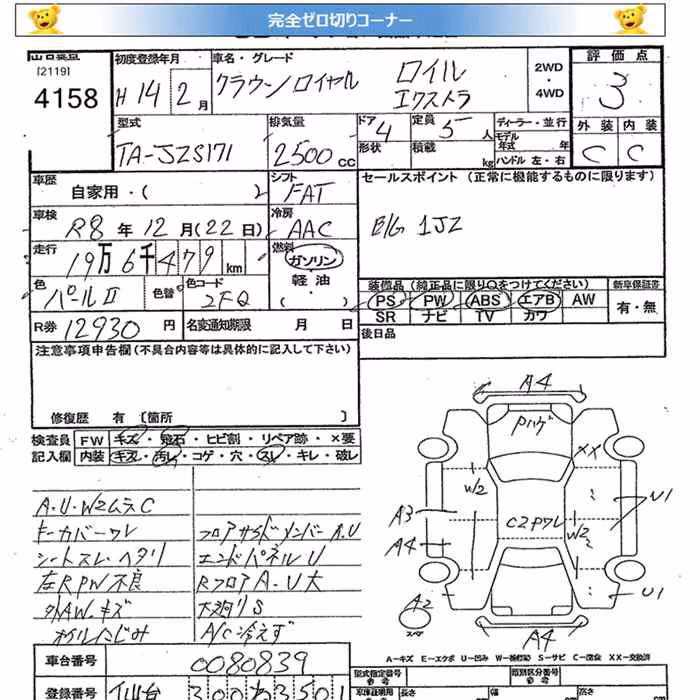 完全ゼロ切りコーナー
[2119]
4158
初度登録年月
H 14 2 月
車名・グレード
クラウンロイヤル
ロイル
エクストラ
2WD
・
4WD
評価点
3
型式
TA-JZS171
排気量
2500 cc
ドア 4
形状
定員 5 人
積載 kg
ディーラー・並行
モデル
年式 年
ハンドル 左・右
外装 内装
C C
車歴
自家用・( )
シフト
FAT
セールスポイント (正常に機能するものに限ります)
E/G 1JZ
車検
R8 年 12 月 (22 日)
冷房
AAC
走行
19万6千479 km
燃料
ガソリン
・
軽油
・
( )
色
パールⅡ
色替
色コード
2FQ
装備品 (純正品に限り○をつけてください)
PS PW ABS エアB AW
SR ナビ TV カワ
新車保証書
有・無
R券 12930 円
名変通知期限 月 日
後日品
注意事項申告欄 (不具合内容等は具体的に記入して下さい)
修復歴 有 〔箇所 〕
検査員
記入欄
FW キズ・飛石・ヒビ割・リペア跡・×要
内装 キズ・汚レ・コゲ・穴・スレ・キレ・破レ
A・U・W2ムラC
キーカバーワレ
シートスレ・ヘタリ
左RPW不良
外AW・キズ
オイルにじみ
フロアサイドメンバーA.U
エンドパネルU
RフロアA・U大
下廻りS
A/C冷えず
A4
Pハゲ
XX
W2
U1
A3
C2Pワレ
W2
A4
A2
スペア
U1
A4
A－キズ E－エクボ U－凹み W－補修跡 S－サビ C－腐食 XX－交換済
車台番号
0080839
登録番号
仙台 300 ね 3501
型式指定番号
類別区分番号
長さ
幅
高さ